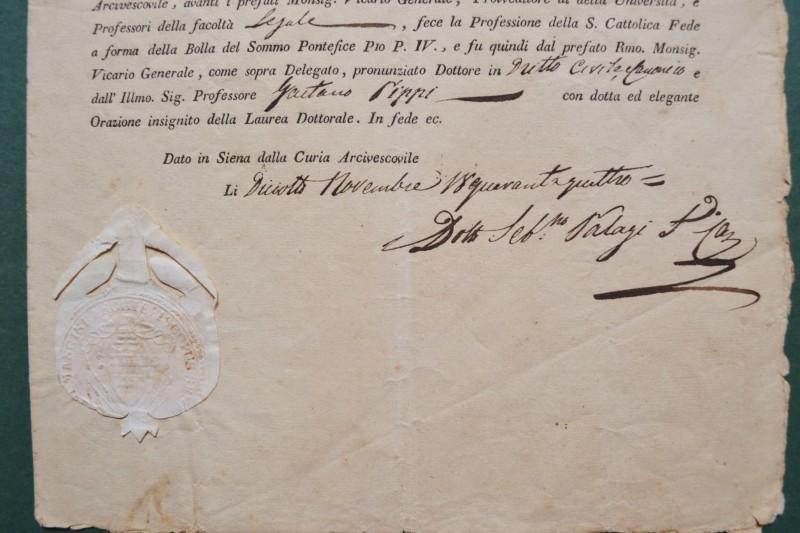 Arcivescovile, avanti i prefati Monsig. Vicario Generale, Provveditor di detta Università, e
Professori della facoltà Legale, fece la Professione della S. Cattolica Fede
a forma della Bolla del Sommo Pontefice Pio P. IV., e fu quindi dal prefato Rmo. Monsig.
Vicario Generale, come sopra Delegato, pronunziato Dottore in Dritto Civile, e Canonico e
dall' Illmo. Sig. Professore Gaetano Pippi con dotta ed elegante
Orazione insignito della Laurea Dottorale. In fede ec.
Dato in Siena dalla Curia Arcivescovile
Li Diciotto Novembre 18quarantaquattro =
Dott. Seb.no Palagi